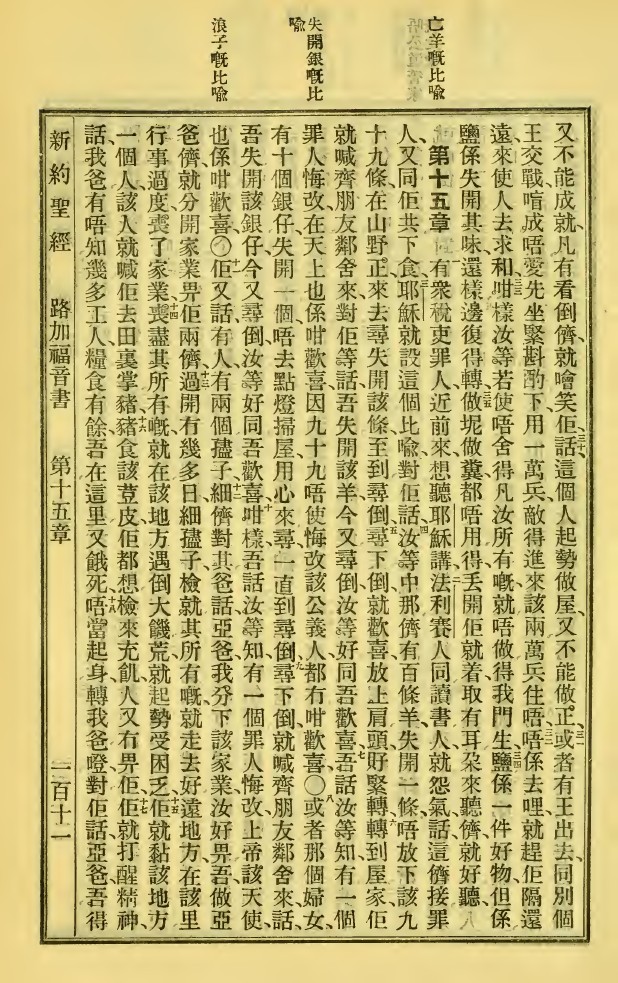 亡羊嘅比喻
失開銀嘅比
喻
浪子嘅比喻
又不能成就、凡有看倒儕就噲笑佢、話這個人起勢做屋、又不能做正、或者有王出去同別個
王交戰、唷成唔愛先坐緊斟酌下、用一萬兵敵得進來該兩萬兵住唔、唔係去哩、就趕佢隔還
遠、來使人去求和、咁樣汝等若使唔舍得凡汝所有嘅、就唔做得我門生、鹽係一件好物、但係
鹽係失開其味、還樣邊復得轉、做坭做糞都唔用得、丟開佢就着、取有耳朶來聽儕、就好聽、
第十五章 有衆稅吏罪人近前來、想聽耶穌講、法利賽人同讀書人就怨氣話、這儕接罪
人、又同佢共下食、耶穌就設這個比喻、對佢話、汝等中那儕有百條羊、失開一條、唔放下該九
十九條在山野、正來去尋失開該條、至到尋倒、尋下倒就歡喜放上肩頭、好緊轉、轉到屋家、佢
就喊齊朋友鄰舍來、對佢等話、吾失開該羊、今又尋倒、汝等好同吾歡喜、吾話汝等知、有一個
罪人悔改、在天上也係咁歡喜、因九十九唔使悔改該公義人、都冇咁歡喜〇或者那個婦女、
有十個銀仔、失開一個、唔去點燈掃屋、用心來尋、一直到尋倒、尋下倒就喊齊朋友鄰舍來、話、
吾失開該銀仔、今又尋倒、汝等好同吾歡喜、咁樣吾話汝等知、有一個罪人悔改、上帝該天使、
也係咁歡喜〇佢又話、有人有兩個孻子、細儕對其爸話、亞爸、我分下該家業、汝好畀吾做、亞
爸儕就分開家業畀佢兩儕、過開有幾多日、細孻子檢就其所有嘅、就走去好遠地方、在該里
行事過度、喪了家業、喪盡其所有嘅、就在該地方遇倒大饑荒、就起勢受困乏、佢就黏該地方
一個人、該人就喊佢去田裏掌豬、豬食該荳皮、佢都想檢來充飢、人又冇畀佢、佢就打醒精神、
話、我爸有唔知幾多工人、糧食有餘、吾在這里又餓死唔當、起身轉我爸嶝、對佢話、亞爸、吾得
新約聖經 路加福音書 第十五章 二百十一